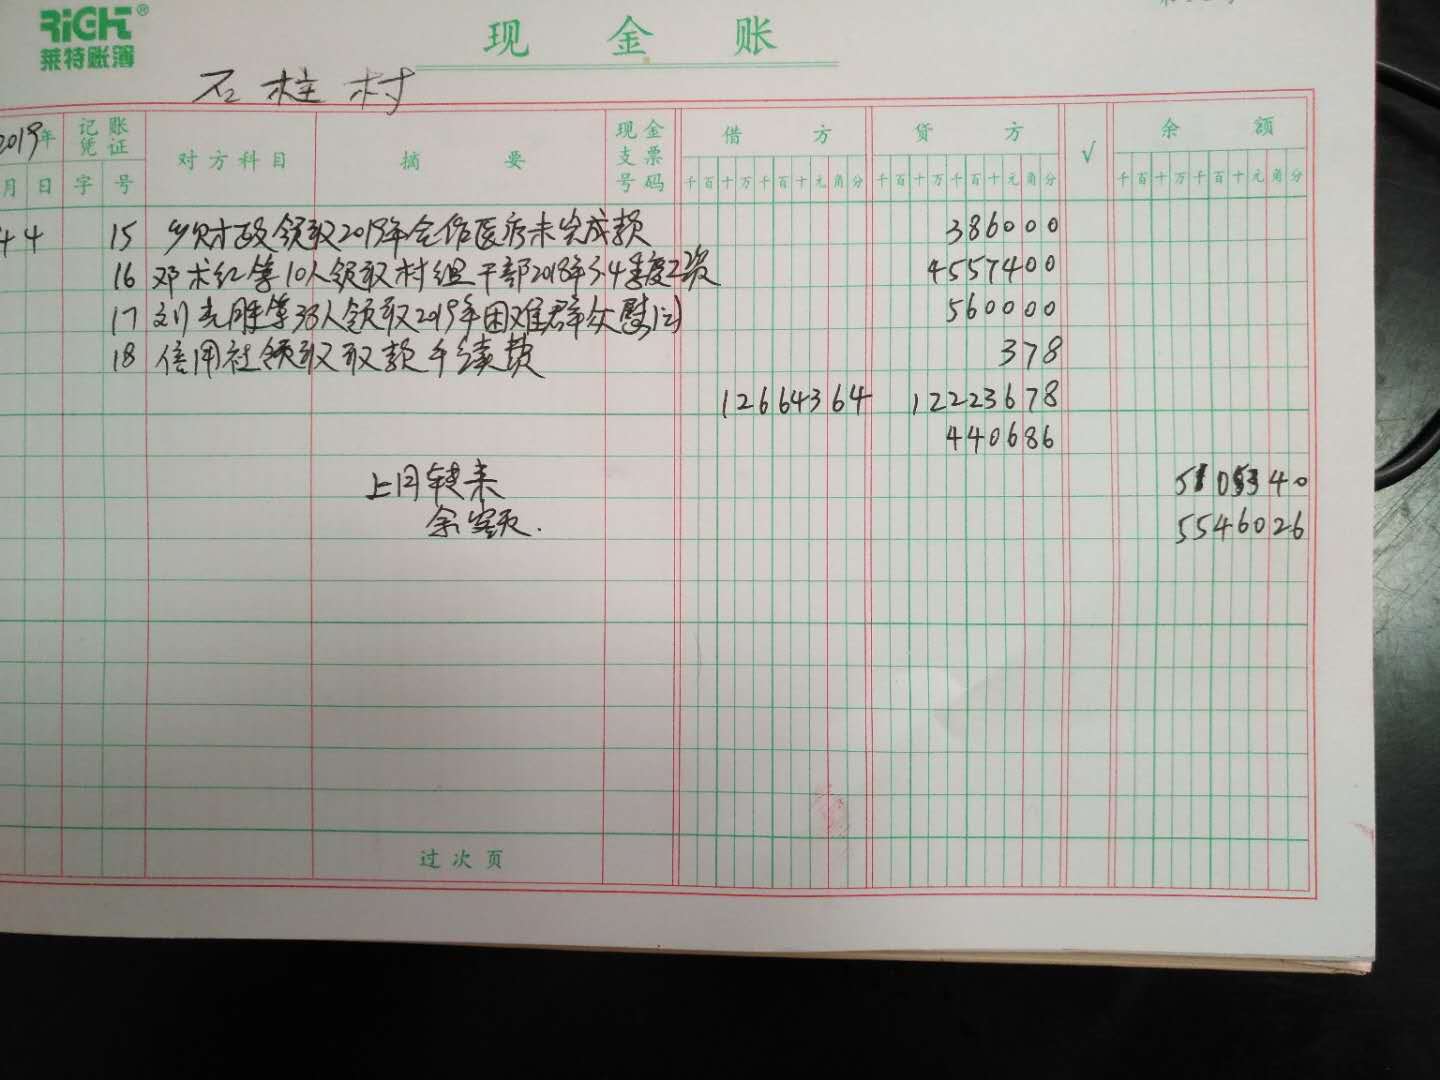 RiGHT®
莱特账簿
现金账
石柱村
2019年 记账凭证 对方科目 摘要 现金支票号码 借方 贷方 √ 余额
月 日 字 号 千百十万千百十元角分 千百十万千百十元角分 千百十万千百十元角分
4 4 15 乡财政领取2019年合作医疗未完成款 386000
16 邓术红等10人领取村组干部2018年3.4季度工资 4557400
17 刘光胜等38人领取2019年困难群众慰问 560000
18 信用社领取取款手续费 378
12664364 12223678
440686
上月转来 5105340
余额. 5546026
过次页